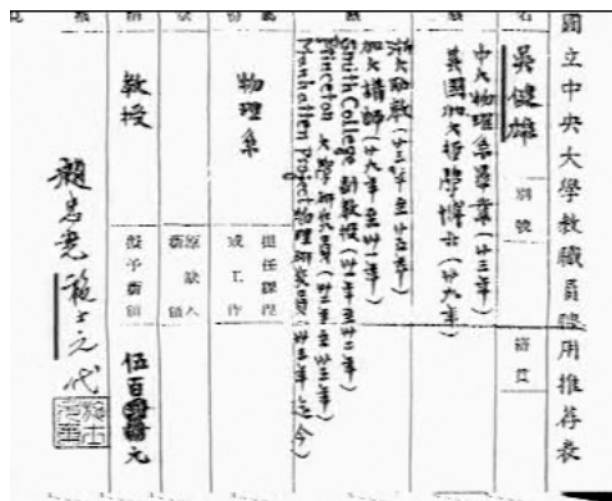 國立中央大學教職員聘用推荐表
名
吳健雄
別號
籍貫
中大物理系畢業(廿三年)
美國加大哲學博士(廿九年)
浙大助教(廿三年至廿五年)
加大講師(廿九年至卅一年)
Smith College 副教授(卅一年至卅二年)
Princeton 大學研究員(卅二年至卅三年)
Manhatten Project物理研究員(卅三年迄今)
物理系
擔任課程
或工作
原缺人
薪額
教授
擬予薪額
伍百
元
趙忠堯 施士元代